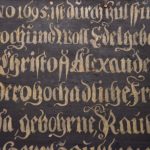 NO 1695 ist durch hülff un
hoch und Woll Edelgebo
Christoff Alexander
der hochadliche Fr
sa gebohrne Rau